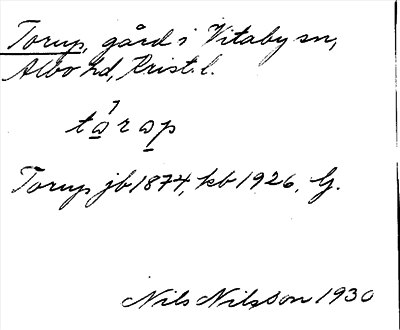 Torup, gård i Vitaby sn,
Albo hd, Krist. l.
tạ́rạp
Torup jb 1874, kb 1926, G.
Nils Nilsson 1930